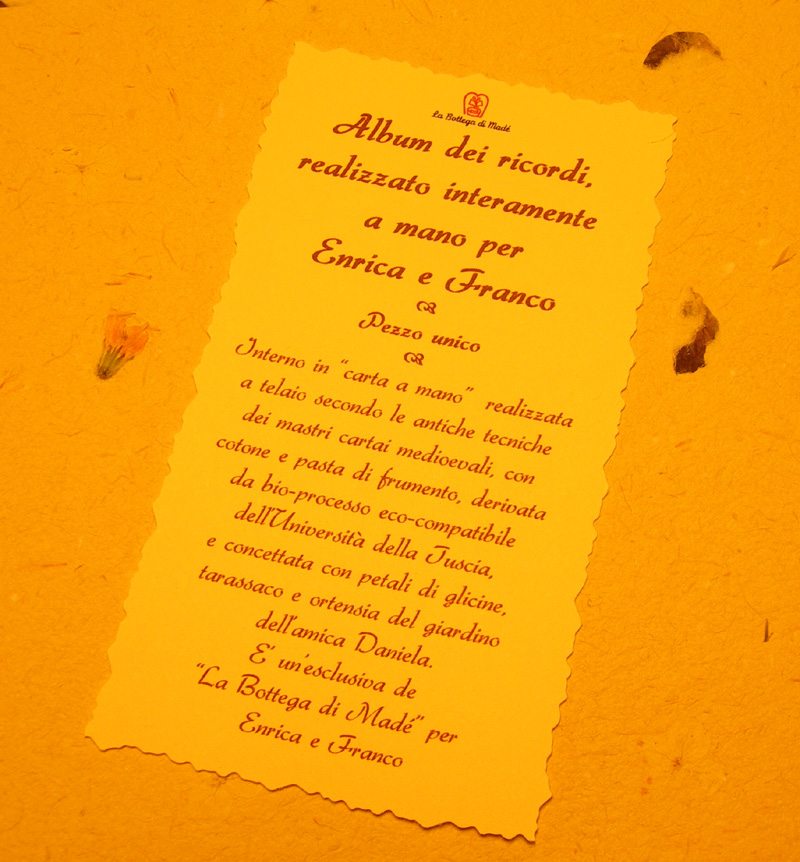 La Bottega di Madé
Album dei ricordi,
realizzato interamente
a mano per
Enrica e Franco
Pezzo unico
Interno in "carta a mano" realizzata
a telaio secondo le antiche tecniche
dei mastri cartai medioevali, con
cotone e pasta di frumento, derivata
da bio-processo eco-compatibile
dell'Università della Tuscia,
e concettata con petali di glicine,
tarassaco e ortensia del giardino
dell'amica Daniela.
E' un'esclusiva de
"La Bottega di Madé" per
Enrica e Franco